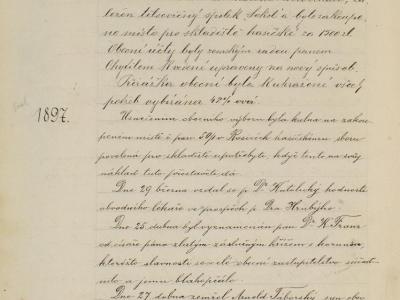 tělocvičný spolek Sokol a bylo zakoupe-
no místo pro skladiště hasičské za 1500 zl.
Obecní účty byly zemským radou panem
vedení upraveny na nový způsob.
Přirážka obecní byla k uhražení více
potřeb vybírána 42% ová.
1897.
Usnesením obecního výboru byla kulna na zakou-
peném místě i pan hasičskému sboru
povolená pro skladiště upotřebiti, když tento na svůj
náklad tuto přestavěti dá.
Dne 29 března vzdal se p. Dr hodnosti
obvodního lékaře ve prospěch p. Dra Hrubýho.
Dne 25 dubna byl vyznamenán pan Dr. K. Franz
od císaře pána zlatým záslužným křížem s korunou,
kteréžto slavnosti se celé obecní zastupitelstvo súčast-
nilo a jemu blahopřálo.
Dne 27 dubna zemřel Arnold Táborský syn